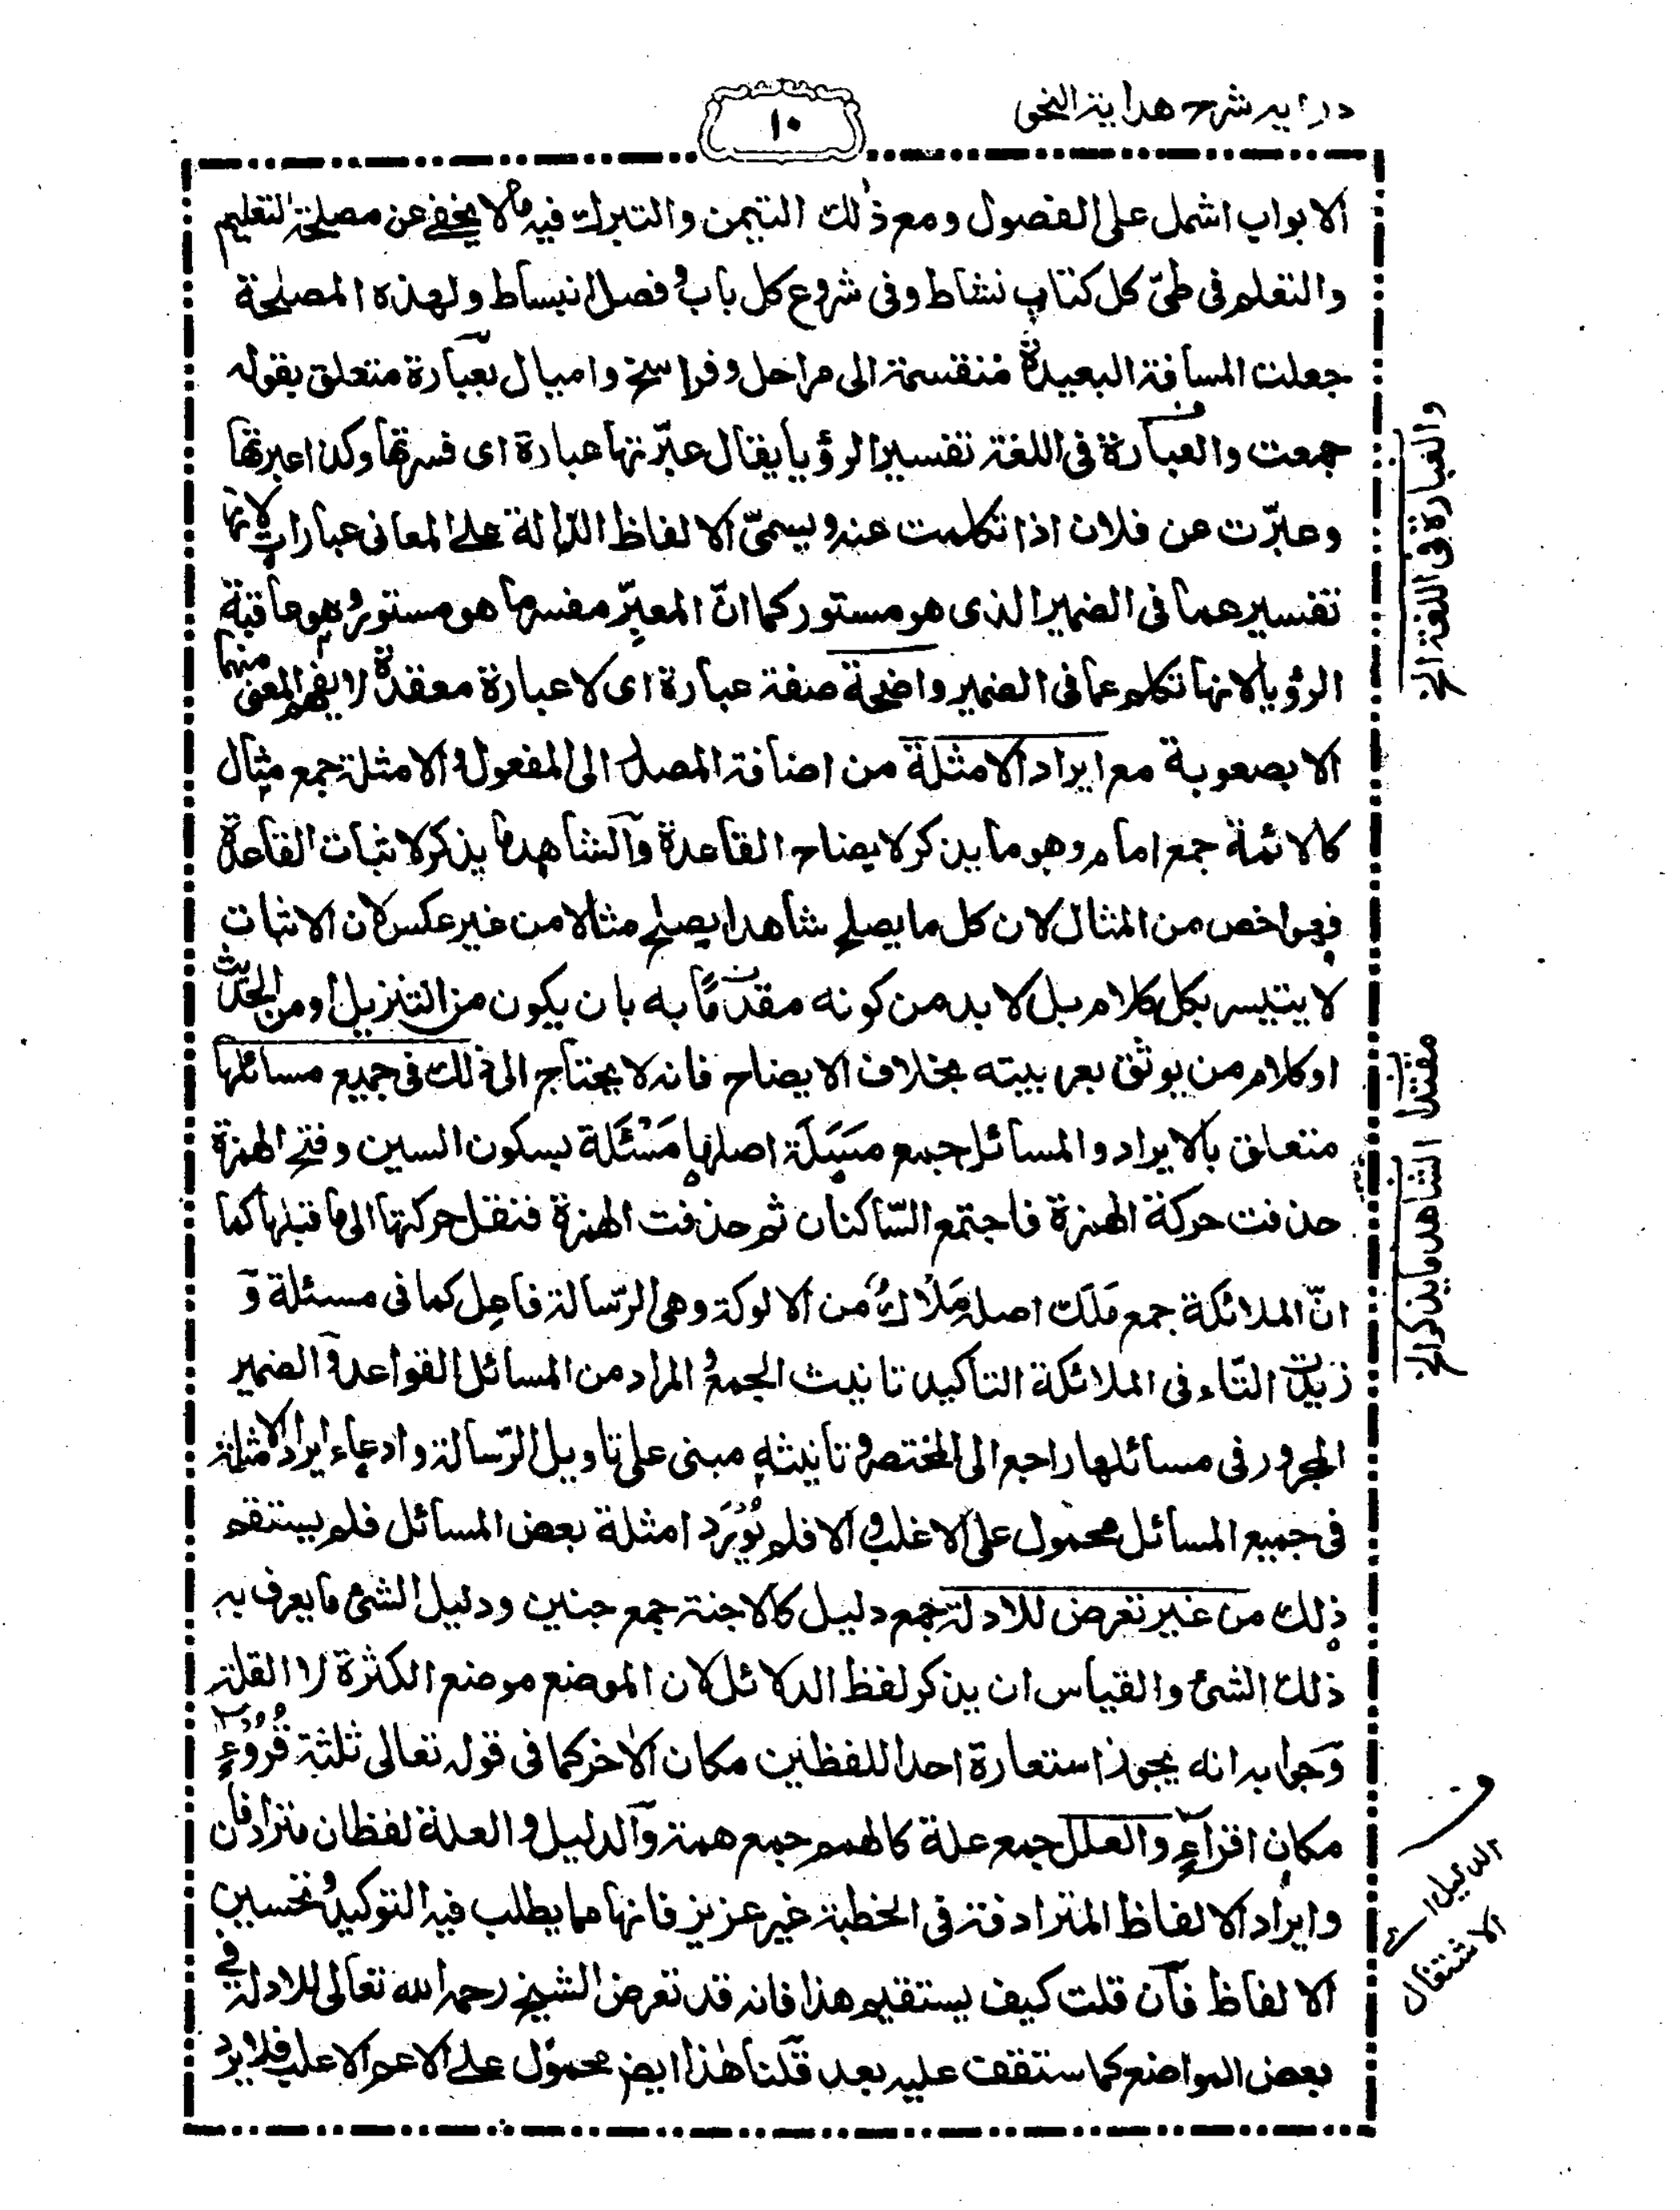 درايه شرح هداية النحو
١٠
الابواب اشمل على الفصول ومع ذٰلك التيمن والتبرك فيه ما لا يخفے عن مصلحة التعليم
والتعلم فى طىّ كل كتاب نشاط وفى شروع كل باب و فصل انبساط ولهذه المصلحة
جعلت المسافة البعيدة منقسمة الى مراحل وفراسخ واميال بعبارة متعلق بقوله
جمعت والعبارة فى اللغة تفسير الرؤيا يقال عبّرتها عبارة اى فسرتها وكذا عبرتها
وعبّرت عن فلان اذا تكلمت عنه ويسمىّ الالفاظ الدالة على المعانى عبارات لانها
تفسير عما فى الضمير الذى هو مستور كما انّ المعبّر مفسر ما هو مستور وهو عاقبة
الرؤيا لانها تكلم عما فى الضمير واضحة صفة عبارة اى لا عبارة معقدة لا يفهم المعنى منها
الا بصعوبة مع ايراد الامثلة من اضافة المصدر الى المفعول و الامثلة جمع مثال
كالائمة جمع امام وهو ما يذكر لايضاح القاعدة والشاهد ما يذكر لاثبات القاعدة
فهو اخص من المثال لان كل ما يصلح شاهدا يصلح مثالا من غير عكس لان الاثبات
لا يتيسر بكل كلام بل لا بد من كونه مقدمًا به بان يكون من التنزيل او من الحديث
او كلام من يوثق بعربيته بخلاف الايضاح فانه لا يحتاج الى ذلك فى جميع مسائلها
متعلق بالايراد والمسائل جمع مَسَلَة اصلها مَسْئَلة بسكون السين وفتح الهمزة
حذفت حركة الهمزة فاجتمع السّاكنان ثم حذفت الهمزة فنقل حركتها الى ما قبلها كما
انّ الملائكة جمع مَلَك اصله مَلْاَكٌ من الالوكة وهى الرّسالة فاعل كما فى مسئلة و
زيدت التّاء فى الملائكة التاكيد تانيث الجمع و المراد من المسائل القواعد و الضمير
المجرور فى مسائلها راجع الى المختصر و تانيثه مبنى على تاويل الرّسالة وادعاء ايراد الامثلة
فى جميع المسائل محمول على الاغلب و الا فلم يُوْرَد امثلة بعض المسائل فلم يستقم
ذلك من غير تعرض للادلة جمع دليل كالاجنة جمع جنين ودليل الشئ ما يعرف به
ذلك الشئ والقياس ان يذكر لفظ الدلائل لان الموضع موضع الكثرة لا القلة
وجوابه انه يجوز استعارة احد اللفظين مكان الاٰخر كما فى قوله تعالى ثلثة قُرُوْءٍ
مكان اقراءٍ والعلل جمع علة كالهمم جمع همة والدليل و العلة لفظان مترادفان
وايراد الالفاظ المترادفة فى الخطبة غير عزيز فانها مما يطلب فيه التوكيد و تحسين
الالفاظ فان قلت كيف يستقيم هذا فانه قد تعرض الشيخ رحمه الله تعالى للادلة فى
بعض المواضع كما ستقف عليه بعد قلنا هٰذا ايض محمول على الاعم الاغلب فلا يرد
والعبارة فى اللغة الخ
الشاهد ما يذكر الخ